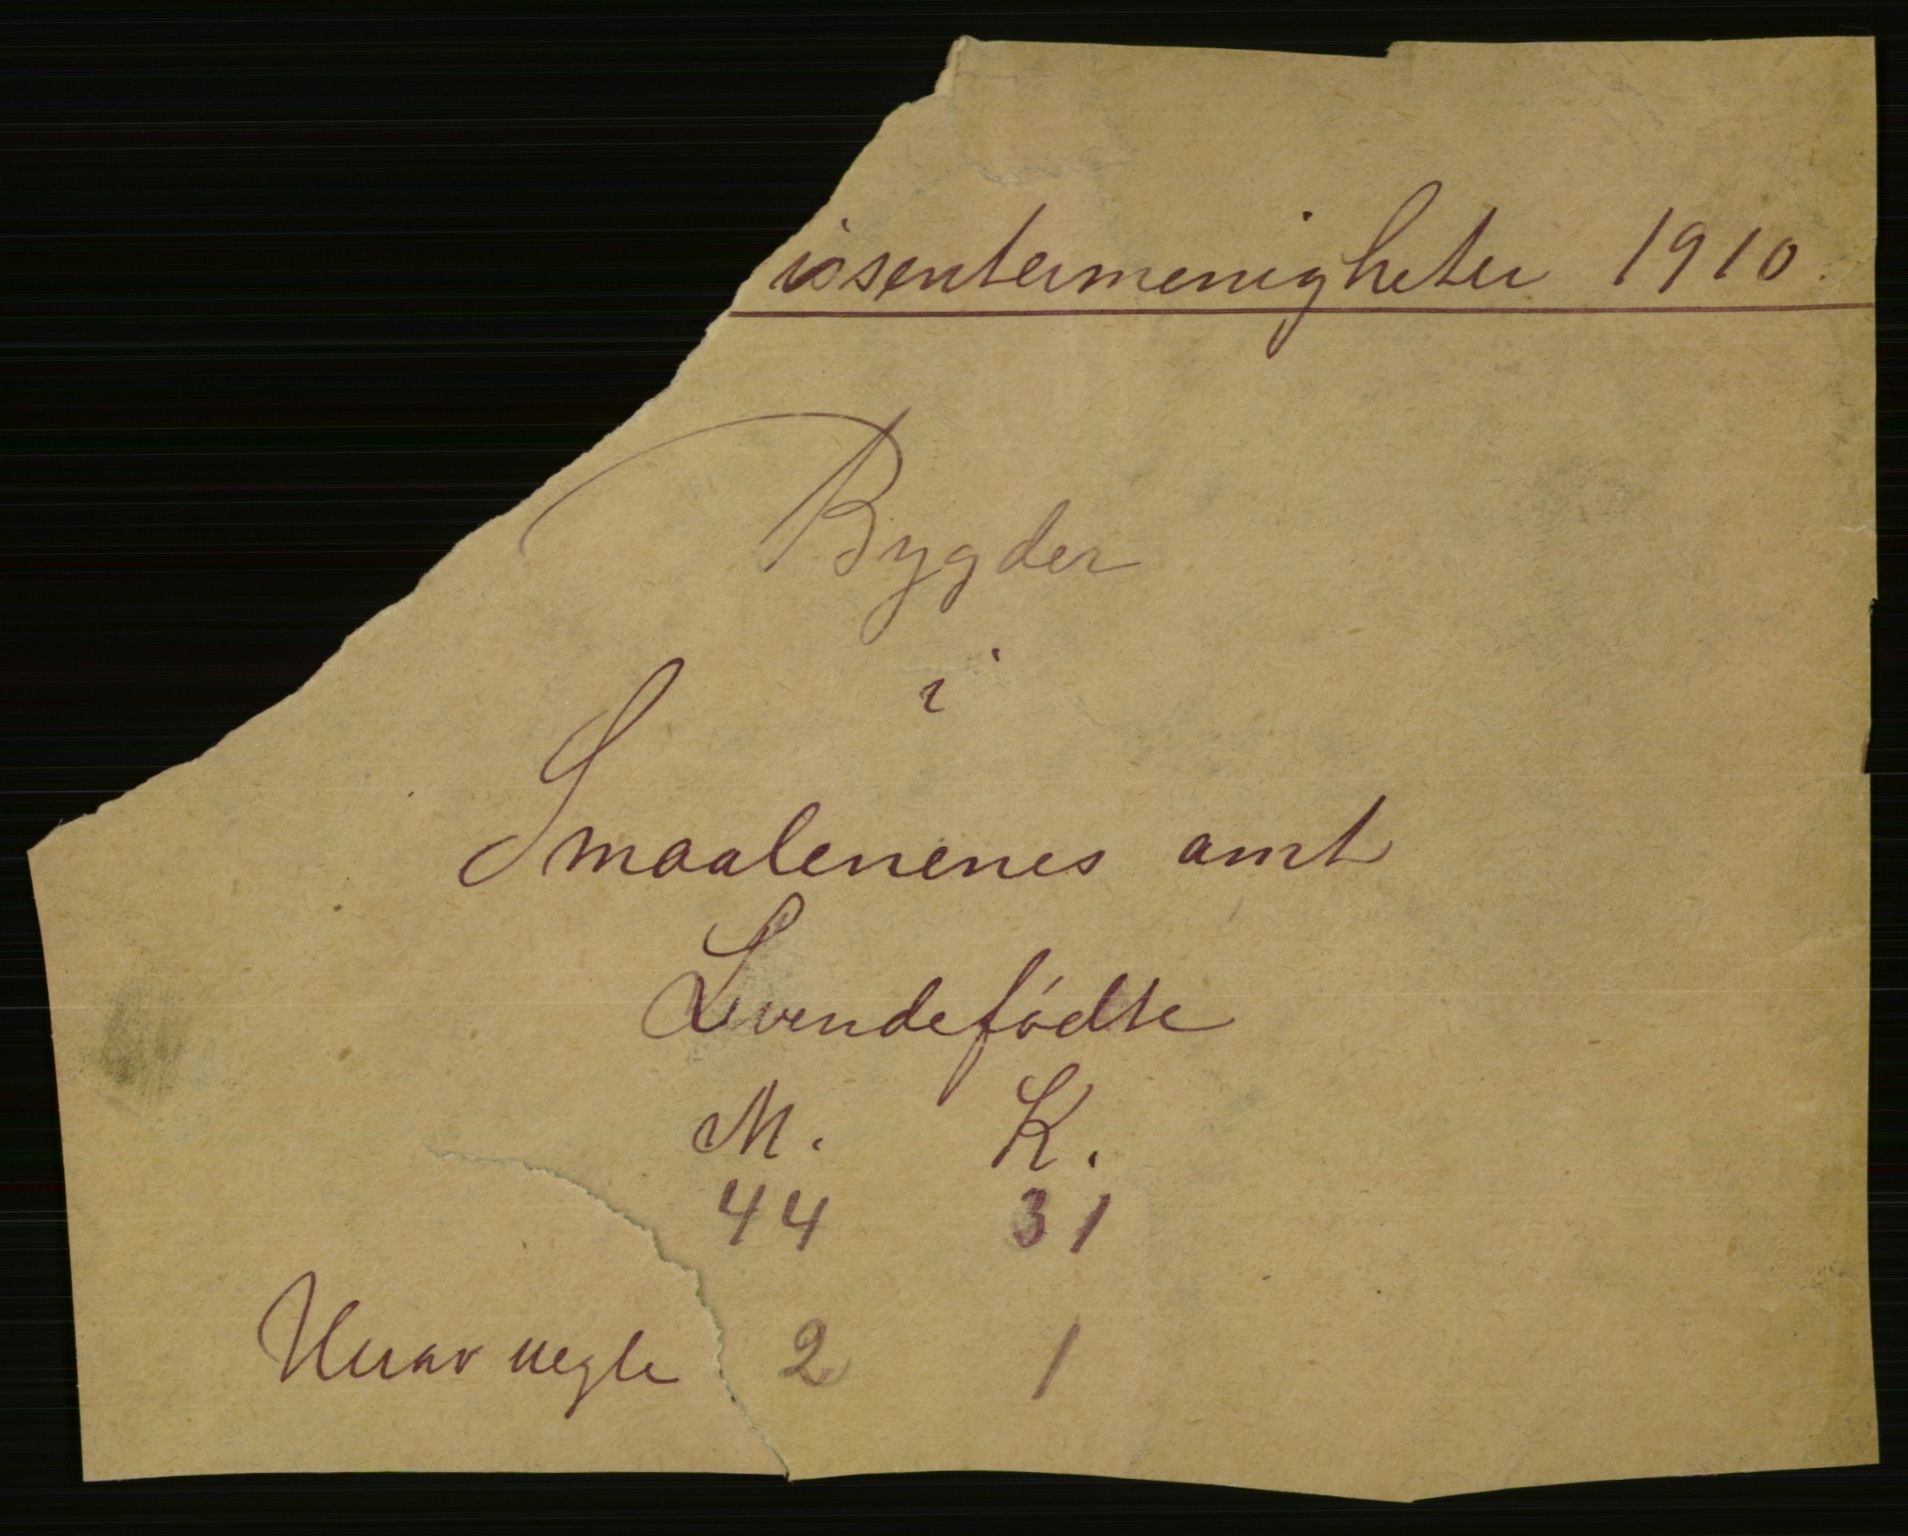 issentermenigheter 1910.
Bygder
i
Smaalenenes amt
Levendefødte
M. K.
44 31
Herav uegte 2 1